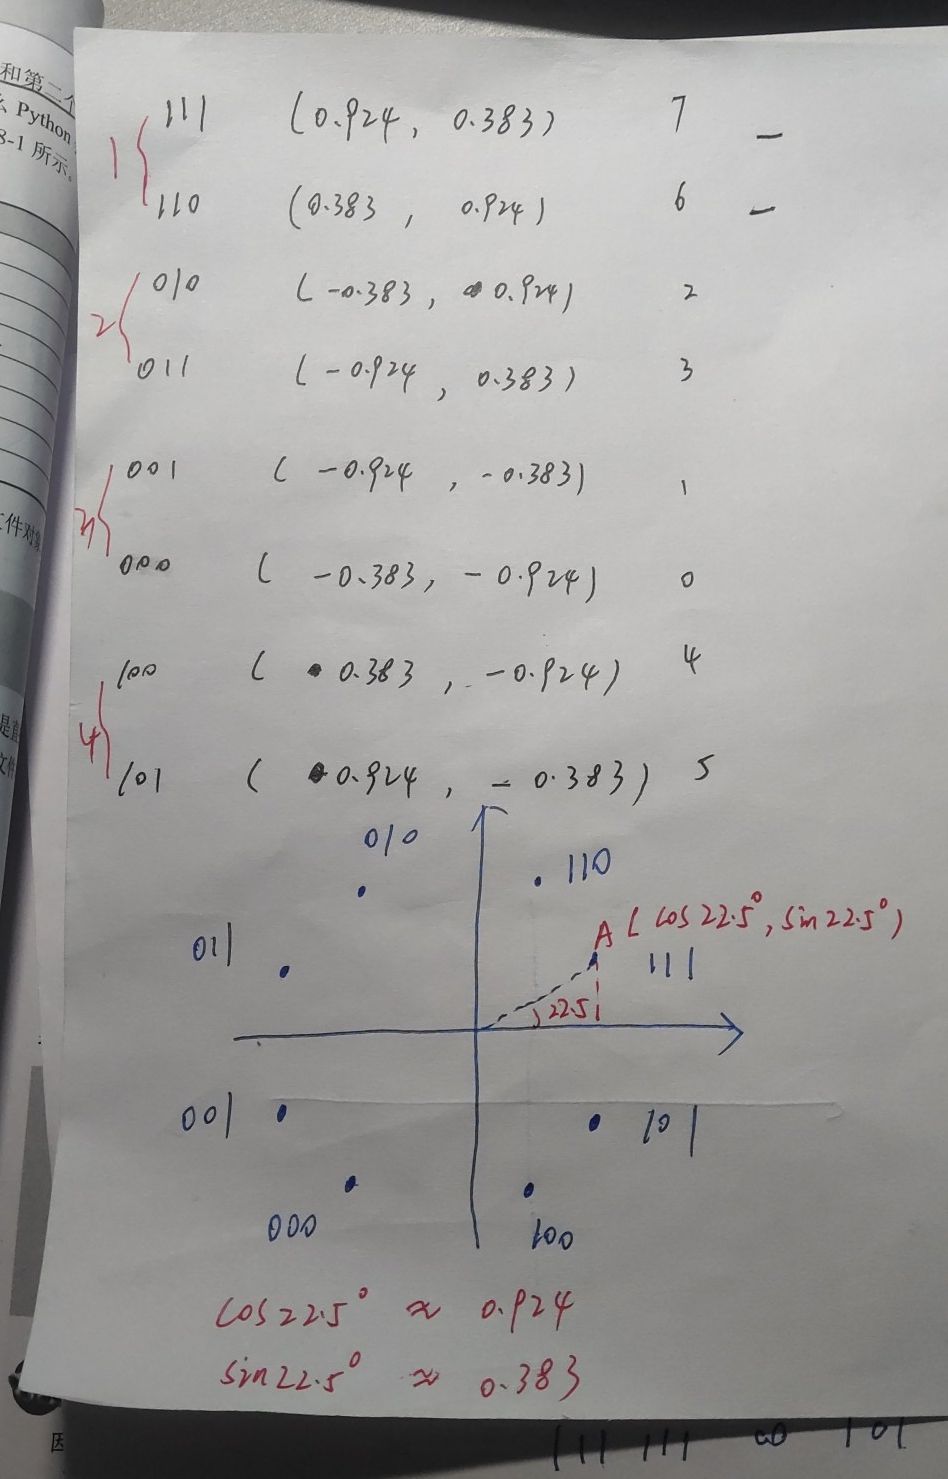 和第二个
Python
8-1 所示。
111 (0.924, 0.383) 7 –
1
110 (0.383, 0.924) 6 –
010 (-0.383, 0.924) 2
2
011 (-0.924, 0.383) 3
001 (-0.924, -0.383) 1
3
文件对象
000 (-0.383, -0.924) 0
100 (0.383, -0.924) 4
4
101 (0.924, -0.383) 5
010
110
A (cos22.5°, sin22.5°)
011
111
22.5
001
101
000
100
cos22.5° ≈ 0.924
sin22.5° ≈ 0.383
111 111 00 101